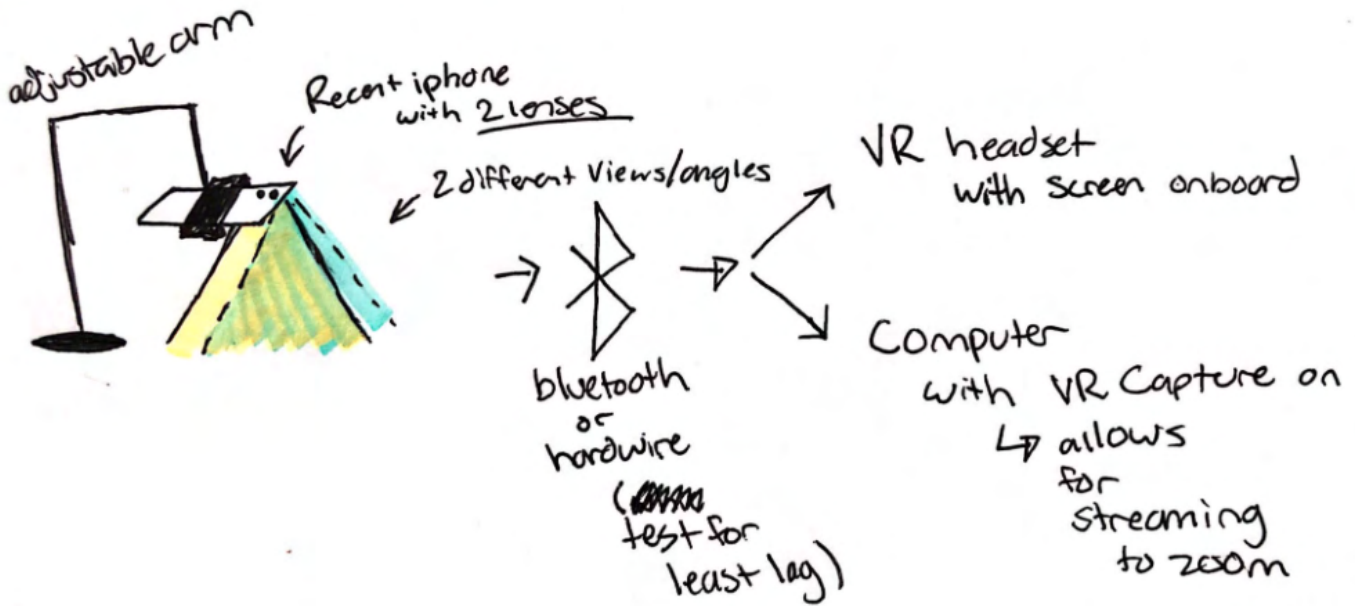 adjustable arm
Recent iphone
with 2 lenses
2 different views/angles
bluetooth
or
hardwire
(
test for
least lag)
VR headset
with screen onboard
Computer
with VR Capture on
allows
for
streaming
to zoom